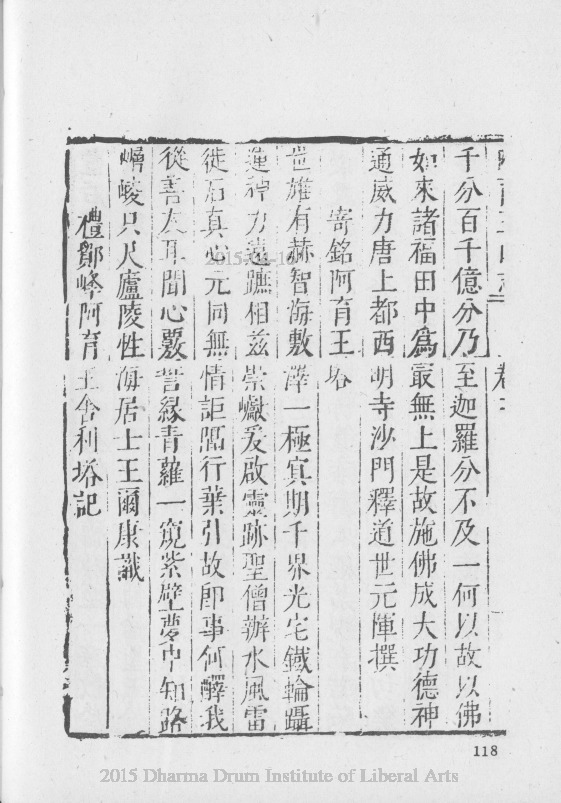 千分百千億分乃至迦羅分不及一何以故以佛
如來諸福田中為最無上是故施佛成大功德神
通威力唐上都西明寺沙門釋道世元惲撰
寄銘阿育王塔
世雄有赫智海敷澤一極寘期千界光宅鐵輪躡
蓮神力遠蹠相茲崇巘爰啟靈跡聖僧辦水風雷
徙石真心元同無情詎隔行葉引故即事何醳我
從善友耳聞心覈誓緣青蘿一窺紫壁夢中知路
嶒峻只尺廬陵性海居士王爾康識
禮鄮峰阿育王舍利塔記
118
2015-04-16
2015 Dharma Drum Institute of Liberal Arts